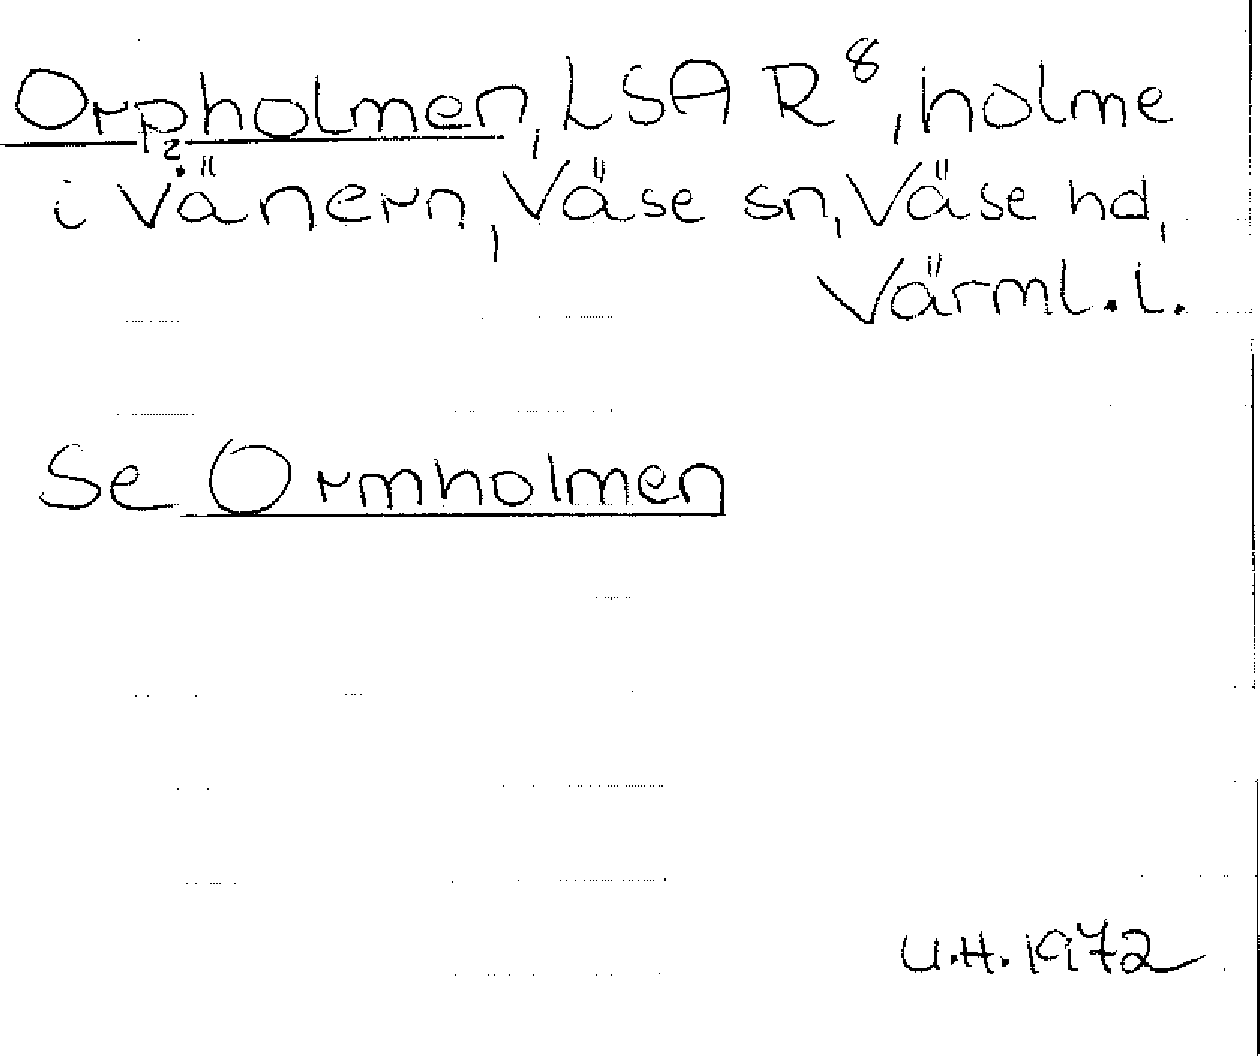 Orpholmen, LSA R⁸, holme
i Vänern, Väse sn, Väse hd,
Värml. l.
Se Ormholmen
U.H. 1972